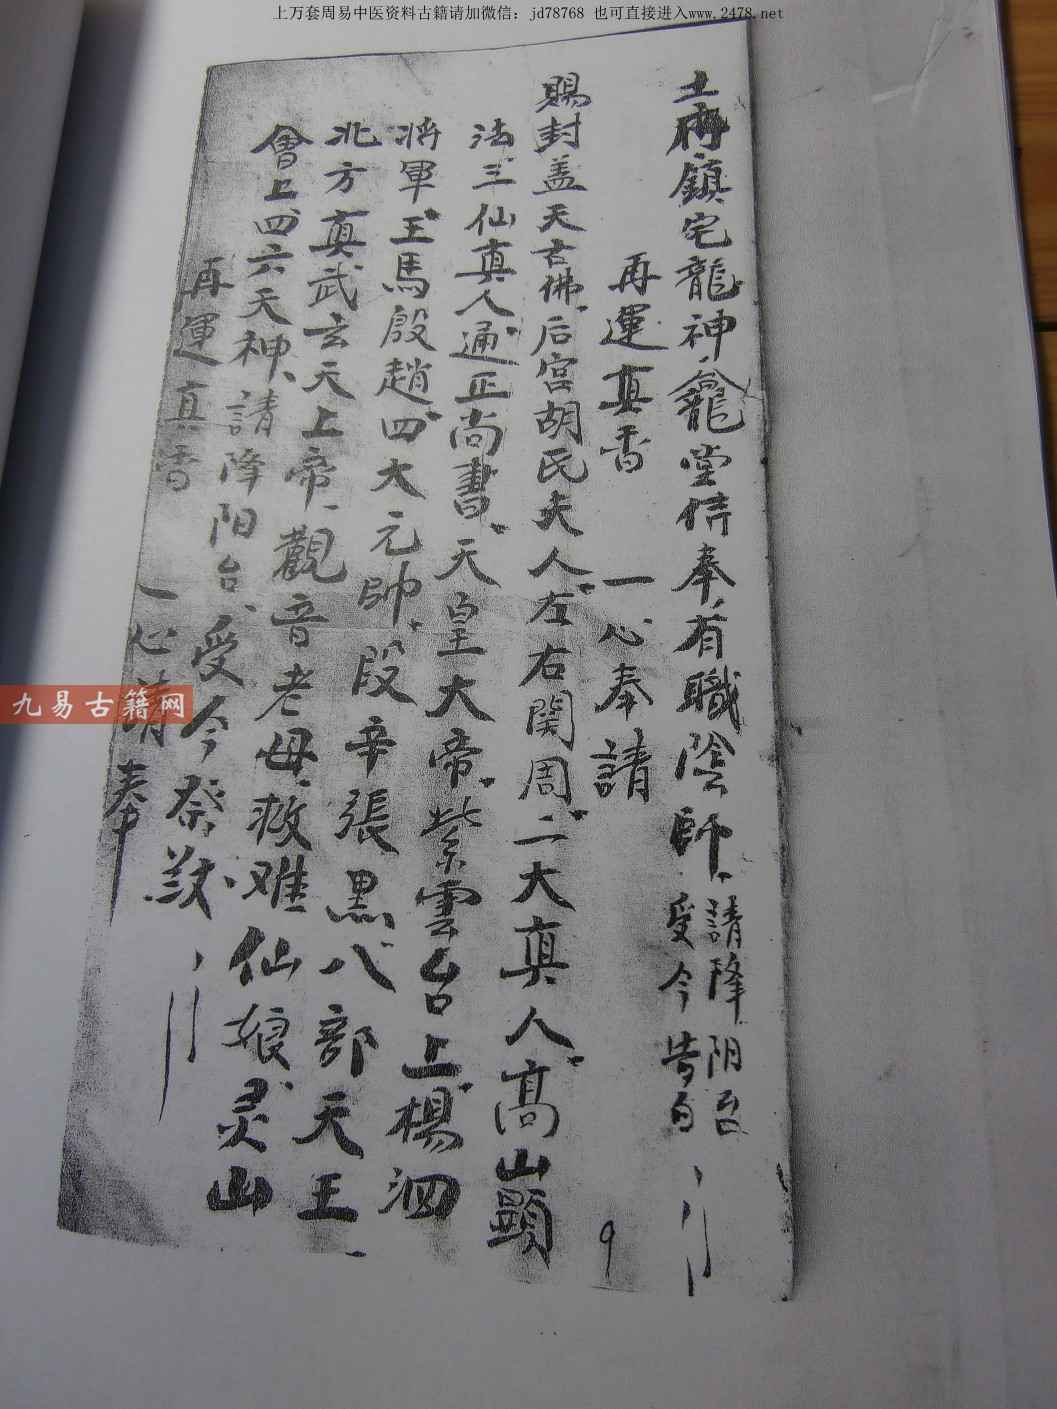 上万套周易中医资料古籍请加微信：jd78768 也可直接进入www.2478.net
土府鎮宅龍神龕堂侍奉有職陰師、請降阳
受今告白
再運真香 一心奉請
賜封盖天古佛、后宮胡氏夫人、左右関周二大真人、高山顕
法三仙真人、通正尚書、天皇大帝、紫雲台上、楊泗
将軍、王馬殷趙四大元帥、段辛張黑八部天王、
北方真武玄天上帝、觀音老母、救难仙娘、灵山
會上四六天神、請降阳台、受今
再運真香 一心請奉
9
九易古籍网